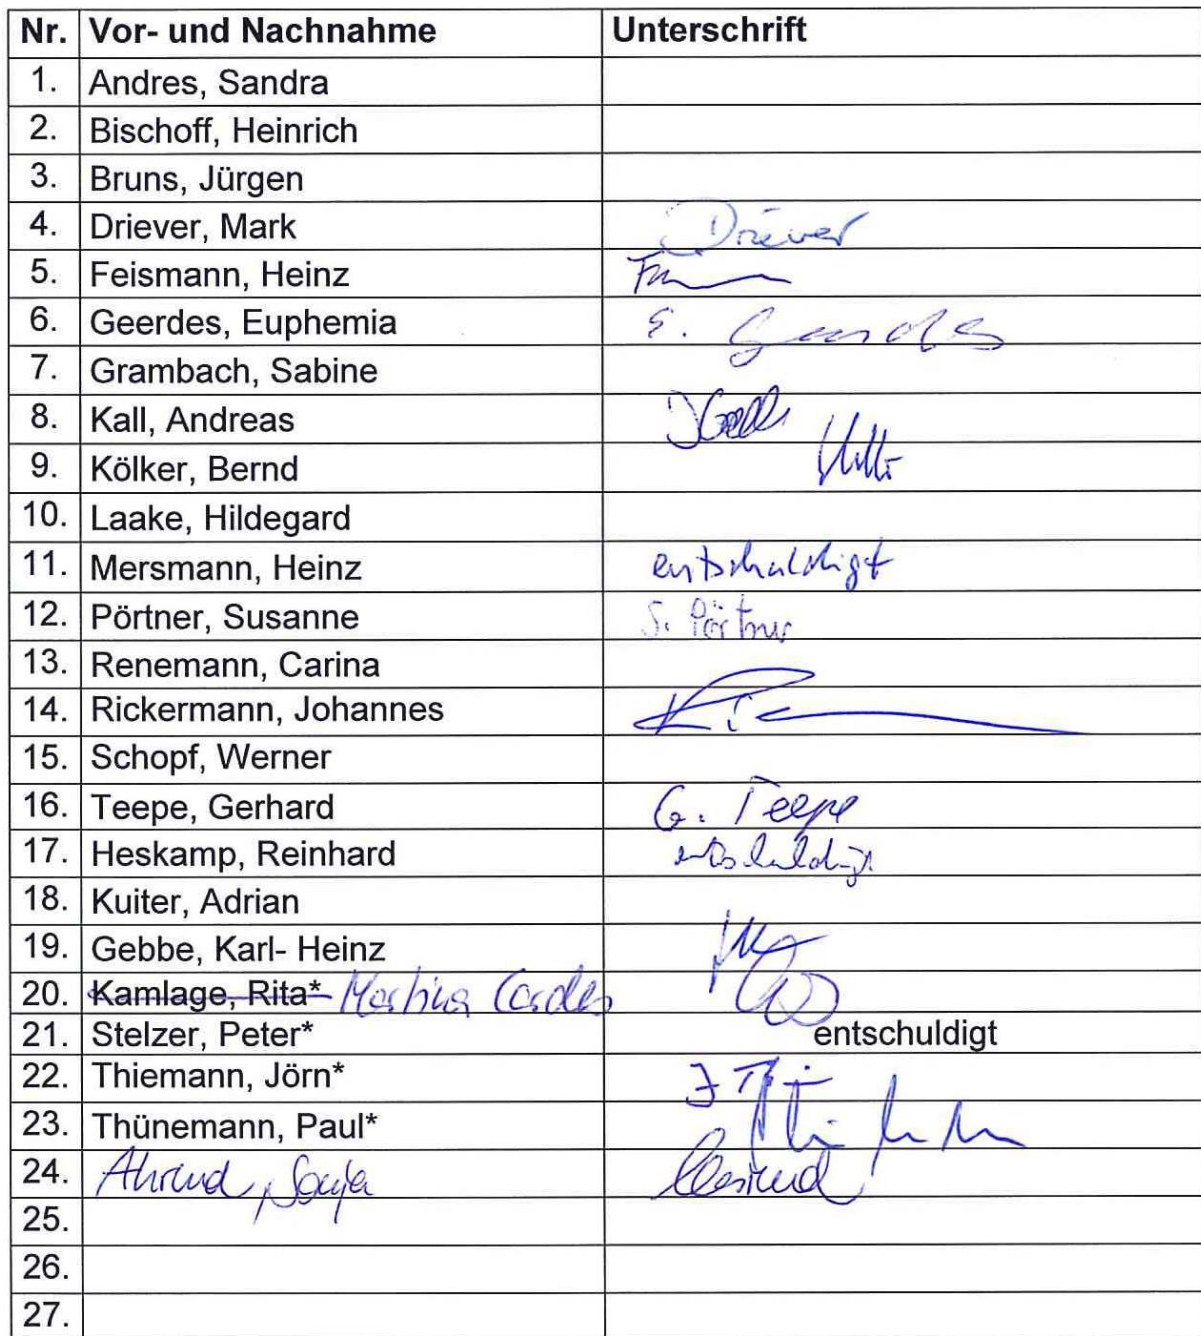 Nr. Vor- und Nachnahme Unterschrift
1. Andres, Sandra
2. Bischoff, Heinrich
3. Bruns, Jürgen
4. Driever, Mark Driever
5. Feismann, Heinz
6. Geerdes, Euphemia
7. Grambach, Sabine
8. Kall, Andreas
9. Kölker, Bernd
10. Laake, Hildegard
11. Mersmann, Heinz entschuldigt
12. Pörtner, Susanne S. Pörtner
13. Renemann, Carina
14. Rickermann, Johannes
15. Schopf, Werner
16. Teepe, Gerhard G. Teepe
17. Heskamp, Reinhard entschuldigt
18. Kuiter, Adrian
19. Gebbe, Karl- Heinz
20. Kamlage, Rita* Martina
21. Stelzer, Peter* entschuldigt
22. Thiemann, Jörn*
23. Thünemann, Paul*
24. Ahrend, Sonja
25.
26.
27.